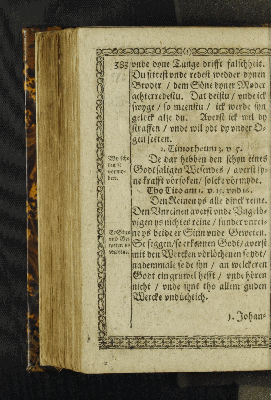 383 vnde dyne Tunge drifft falschheit.
Du sittest vnde redest wedder dynen
Broder / dem Söne dyner Moder
achterredestu. Dat deistu / vnde ick
swyge / so meenstu / ick werde syn
gelick alse du. Auerst ick wil dy
straffen / vnde wil ydt dy vnder O-
gen setten.
2. Timotheum 3. v. 5.
De dar hebben den schyn eines
Godtsaligen Wesendes / auerst sy-
ne krafft vorsaken / solcke vormyde.
Tho Tito am 1. v. 15. vnd 16.
Den Reinen ys alle dinck reine.
Den Vnreinen auerst vnde Vngelö-
uigen ys nichtes reine / sunder vnrei-
ne ys beide er Sinn vnde Geweten.
Se seggen / se erkennen Godt / auerst
mit den Wercken vorlöchenen se ydt /
nademmale se de syn / an welckeren
Godt ein gruwel hefft / vnde hören
nicht / vnde synt tho allem guden
Wercke vnduchtich.
1. Johan-